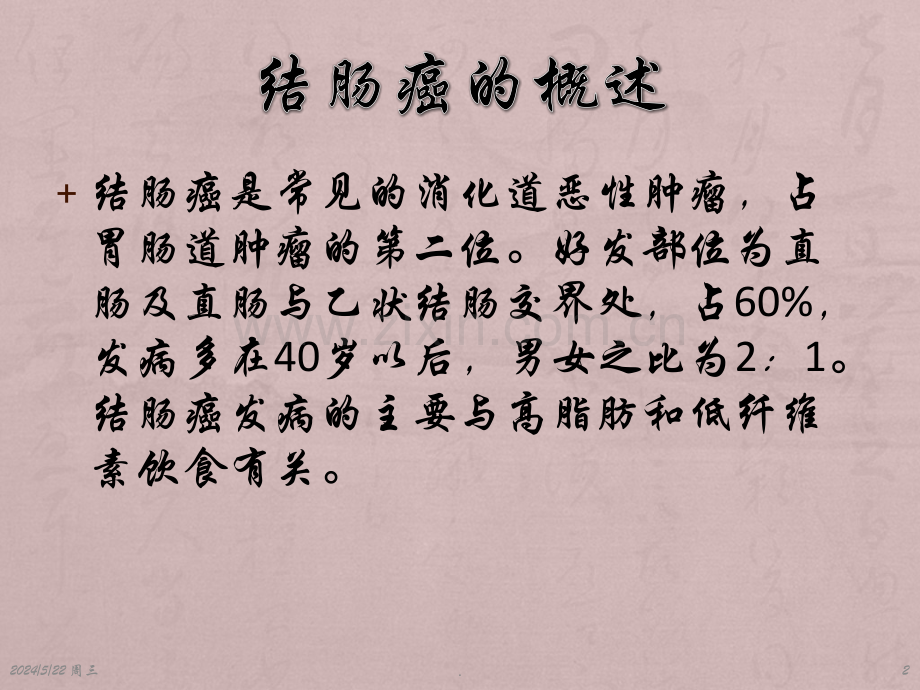 结肠癌的概述
+ 结肠癌是常见的消化道恶性肿瘤，占
胃肠道肿瘤的第二位。好发部位为直
肠及直肠与乙状结肠交界处，占60%，
发病多在40岁以后，男女之比为2：1。
结肠癌发病的主要与高脂肪和低纤维
素饮食有关。
www.zixin.com.cn
2024/5/22 周三
.
2